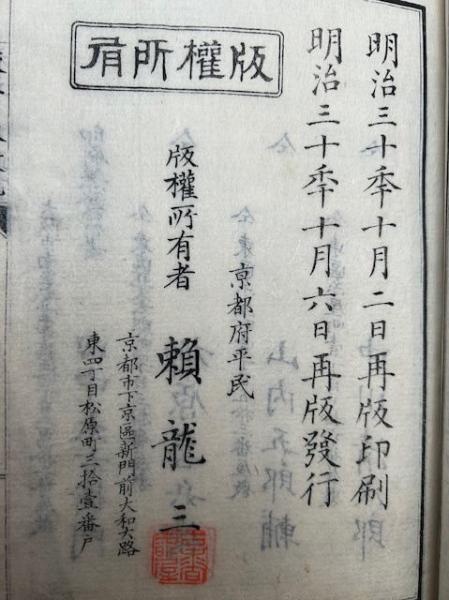 明治三十年十月二日再版印刷
明治三十年十月六日再版發行
版權所有
京都府平民
版權所有者 賴龍三
京都市下京區新門前大和大路
東四丁目松原町三拾壹番戶